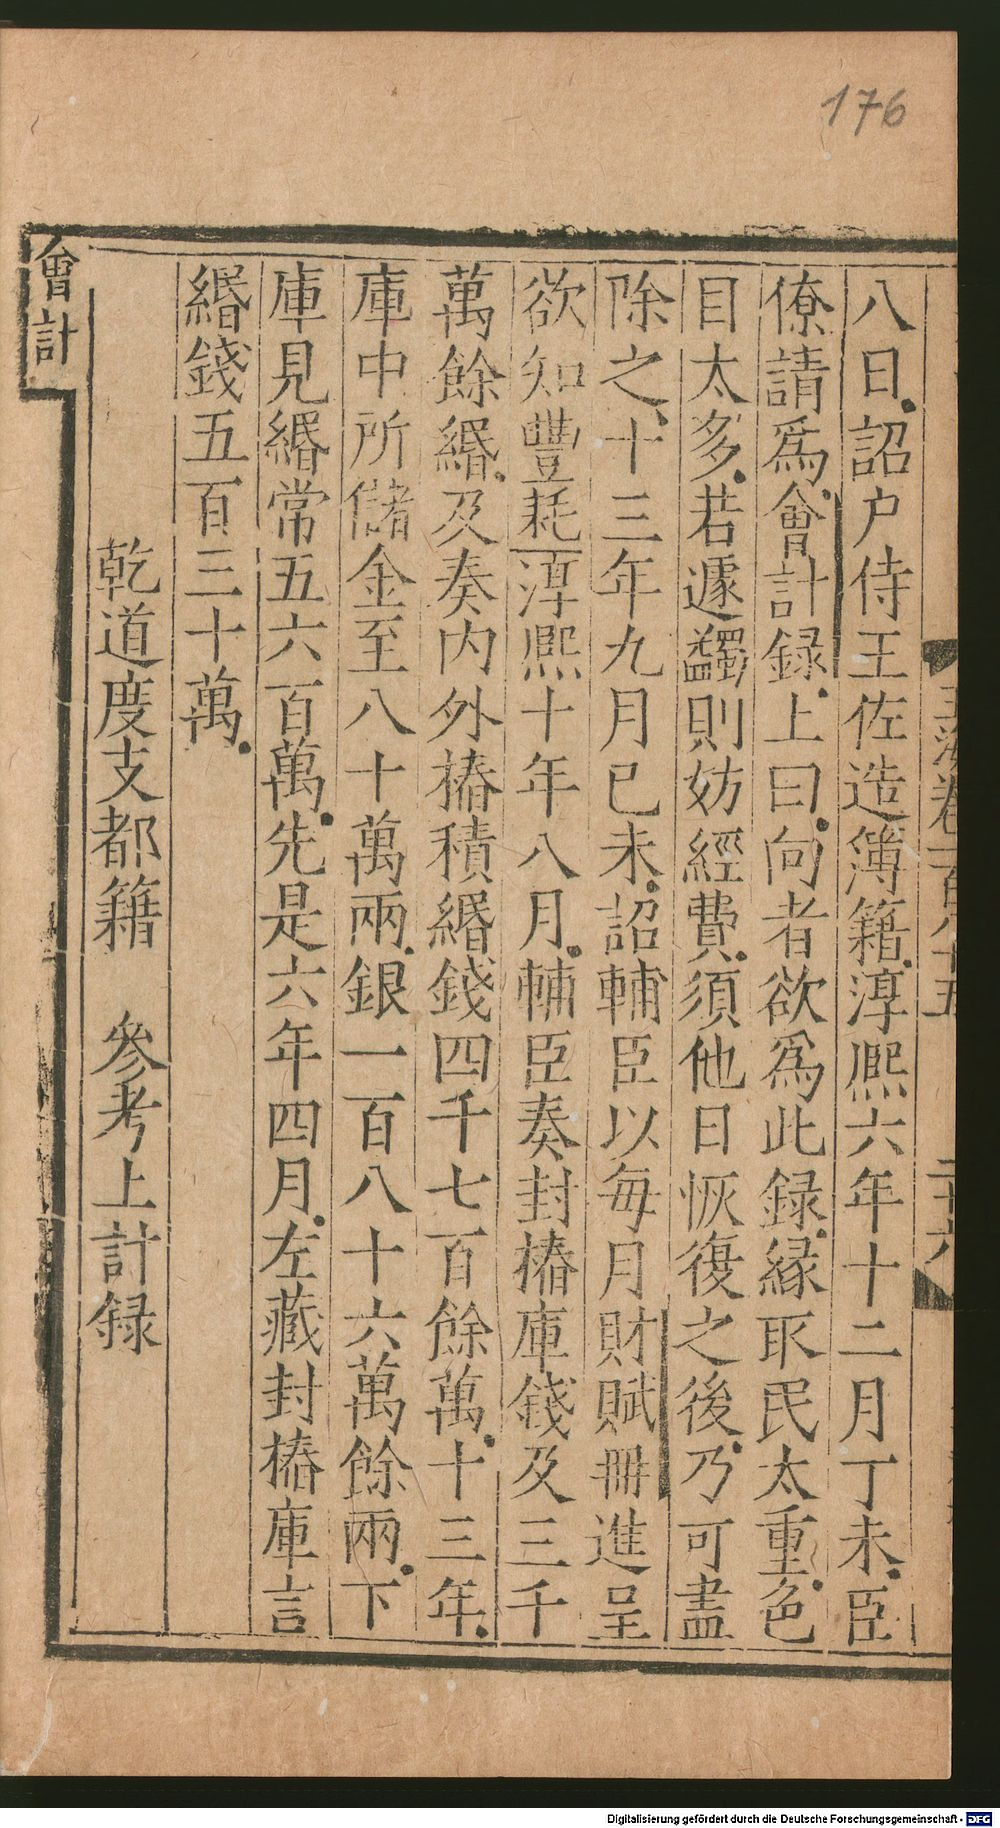 176
八日詔户侍王佐造簿籍淳熈六年十二月丁未臣
僚請爲會計録上曰向者欲爲此録縁取民太重色
目太多若遽蠲則妨經費須他日恢復之後乃可盡
除之十三年九月已未詔輔臣以每月財賦冊進呈
欲知豐耗淳熈十年八月輔臣奏封樁庫錢及三千
萬餘緡及奏内外樁積緡錢四千七百餘萬十三年
庫中所儲金至八十萬兩銀一百八十六萬餘兩下
庫見緡常五六百萬先是六年四月左藏封樁庫言
緡錢五百三十萬
乾道度支都籍 參考上計録
會計
玉海卷一百八十五 二十六
Digitalisierung gefördert durch die Deutsche Forschungsgemeinschaft - DFG